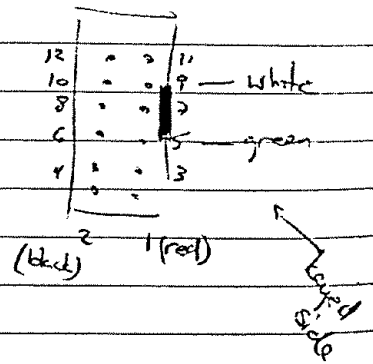 12 11
10 9 — white
8 7
6 5 — green
4 3
2 1 (red)
(black)
keyed side